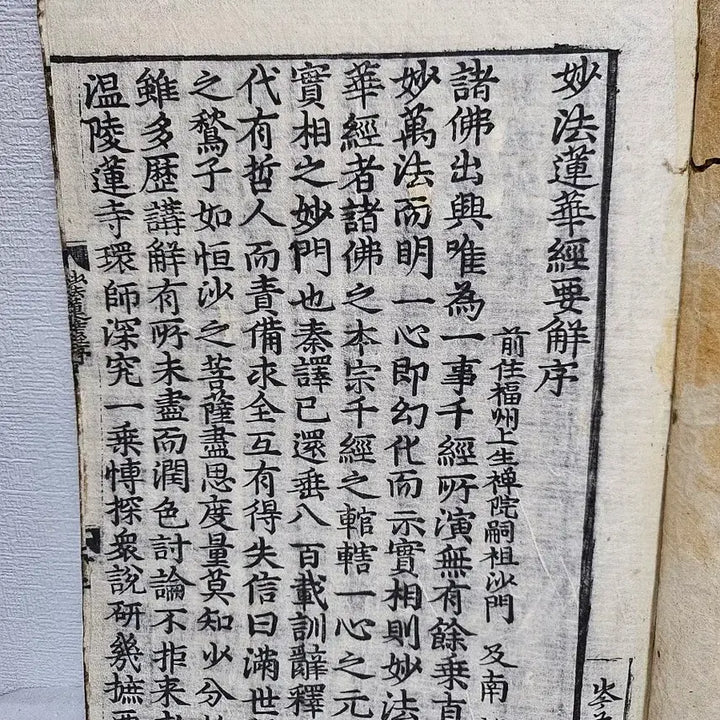 妙法蓮華經要解序
前住福州上生禅院嗣祖沙門 及南
諸佛出興唯為一事千經所演無有餘乗直
妙萬法而明一心即幻化而示實相則妙法
華經者諸佛之本宗千經之輨轄一心之元
實相之妙門也秦譯已還垂八百載訓辭釋
代有哲人而責備求全互有得失信曰滿世
之鶖子如恒沙之菩薩盡思度量莫知少分
雖多歷講解有所未盡而潤色討論不拒来
温陵蓮寺環師深究一乗愽探衆說研幾摭